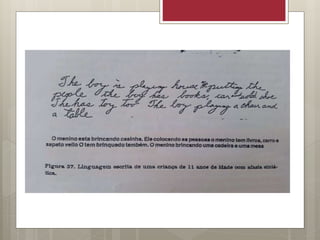 The boy is playing house puting the
people the boy has books, car
The has toy too The boy playing a chair and
a table
O menino esta brincando casinha. Ele colocando as pessoas o menino tem livros, carro e
sapato O tem brinquedo também. O menino brincando uma cadeira e uma mesa
Figura 37. Linguagem escrita de uma criança de 11 anos de idade com afasia sintá-
tica.